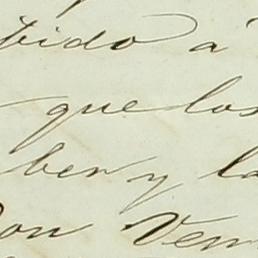 bido a
que los
ber y la
Don Ven